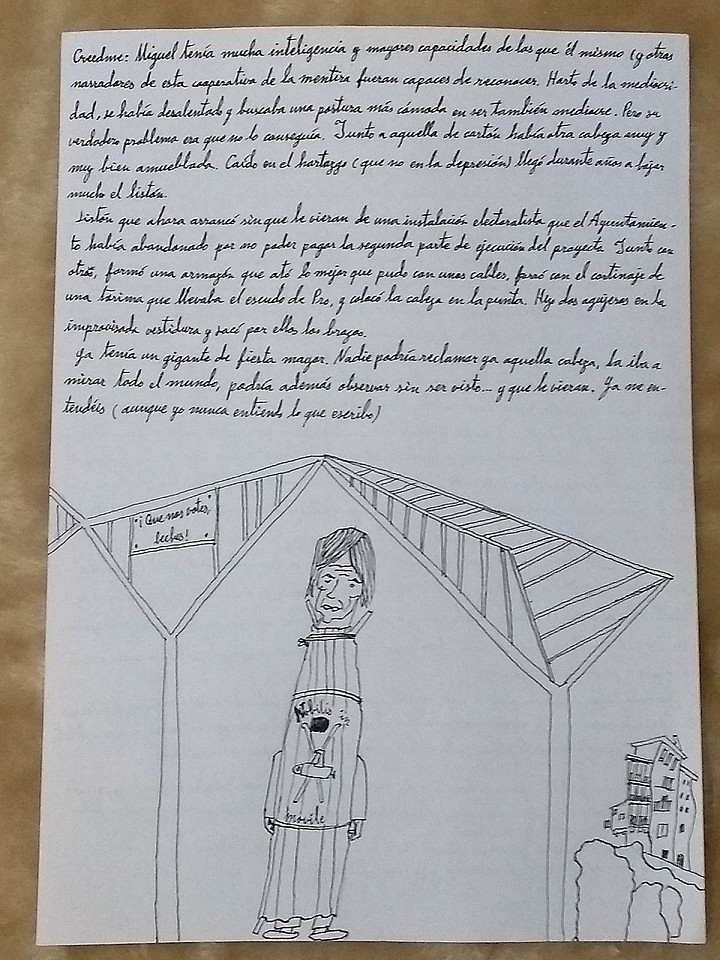 Creedme: Miguel tenía mucha inteligencia y mayores capacidades de las que él mismo (y otros
narradores de esta cooperativa de la mentira fueran capaces de reconocer. Harto de la mediocri-
dad, se había desalentado y buscaba una postura más cómoda en ser también mediocre. Pero su
verdadero problema era que no lo conseguía. Junto a aquella de cartón había otra cabeza muy y
muy bien amueblada. Caído en el hartazgo (que no en la depresión) llegó durante años a bajar
mucho el listón.
Listón que ahora arrancó sin que le vieran de una instalación electoralista que el Ayuntamien-
to había abandonado por no poder pagar la segunda parte de ejecución del proyecto. Junto con
otros, formó una armazón que ató lo mejor que pudo con unos cables, forró con el cortinaje de
una tarima que llevaba el escudo de Pro, y colocó la cabeza en la punta. Hizo dos agujeros en la
improvisada vestidura y sacó por ellos los brazos.
Ya tenía un gigante de fiesta mayor. Nadie podría reclamar ya aquella cabeza, la iba a
mirar todo el mundo, podría además observar sin ser visto... y que le vieran. Ya me en-
tendéis (aunque yo nunca entiendo lo que escribo)
¡Que nos votes,
leches!
Nobilis
movile